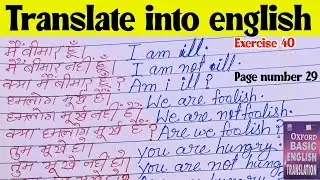 Translate into english
Exercise 40
मैं बीमार हूँ। I am ill.
मैं बीमार नहीं हूँ। I am not ill.
Page number 29
क्या मैं बीमार हूँ? Am i ill ?
हमलोग मूर्ख हैं। We are foolish.
हमलोग मूर्ख नहीं हैं। We are not foolish.
क्या हमलोग मूर्ख हैं? Are we foolish ?
भूखे हो। you are hungry.
तुम भूखे नहीं हो। you are not hung
OXFORD
BASIC
ENGLISH
TRANSLATION